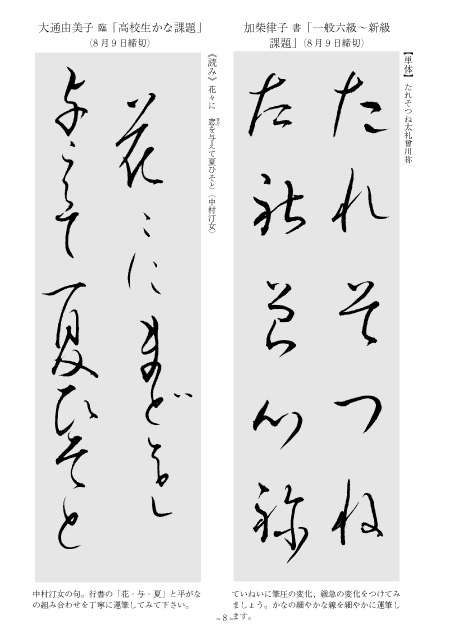 加柴律子 書「一般六級～新級
課題」(8月9日締切)
【単体】 たれそつね太礼曾川祢
たれそつね
太礼曾川祢
ていねいに筆圧の変化、緩急の変化をつけてみ
ましょう。かなの細やかな線を細やかに運筆し
ます。
大通由美子 臨「高校生かな課題」
(8月9日締切)
《読み》花々に 窓を与えて夏ひそと(中村汀女)
花ゝに まどを
与えて夏ひそと
中村汀女の句。行書の「花・与・夏」と平がな
の組み合わせを丁寧に運筆してみて下さい。
- 8 -